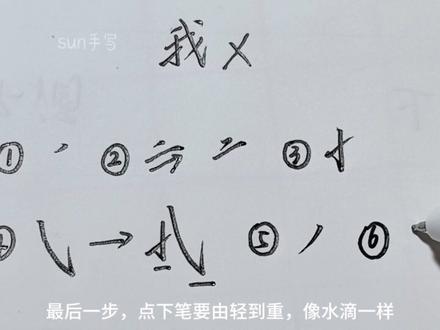 sun手写
我 ×
① ② ③
④ → ⑤ ⑥
最后一步，点下笔要由轻到重，像水滴一样